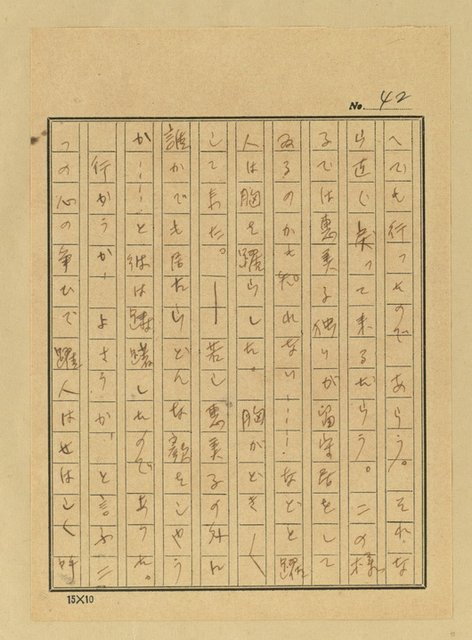 No. 42
へでも行つたのであらう。それな
ら直に戻つて来るだらう。この様
子では恵美子独りが留守居をして
ゐるのかも知れない……などと躍
人は胸を躍らした。胸がどき〱
して来た。――若し恵美子の外に
誰かでも居たらどんな顔をしやう
か……と彼は躊躇したのであつた。
行かうか、よさうか、と言ふ二
つの心の争ひで躍人はせはしく呼
15×10